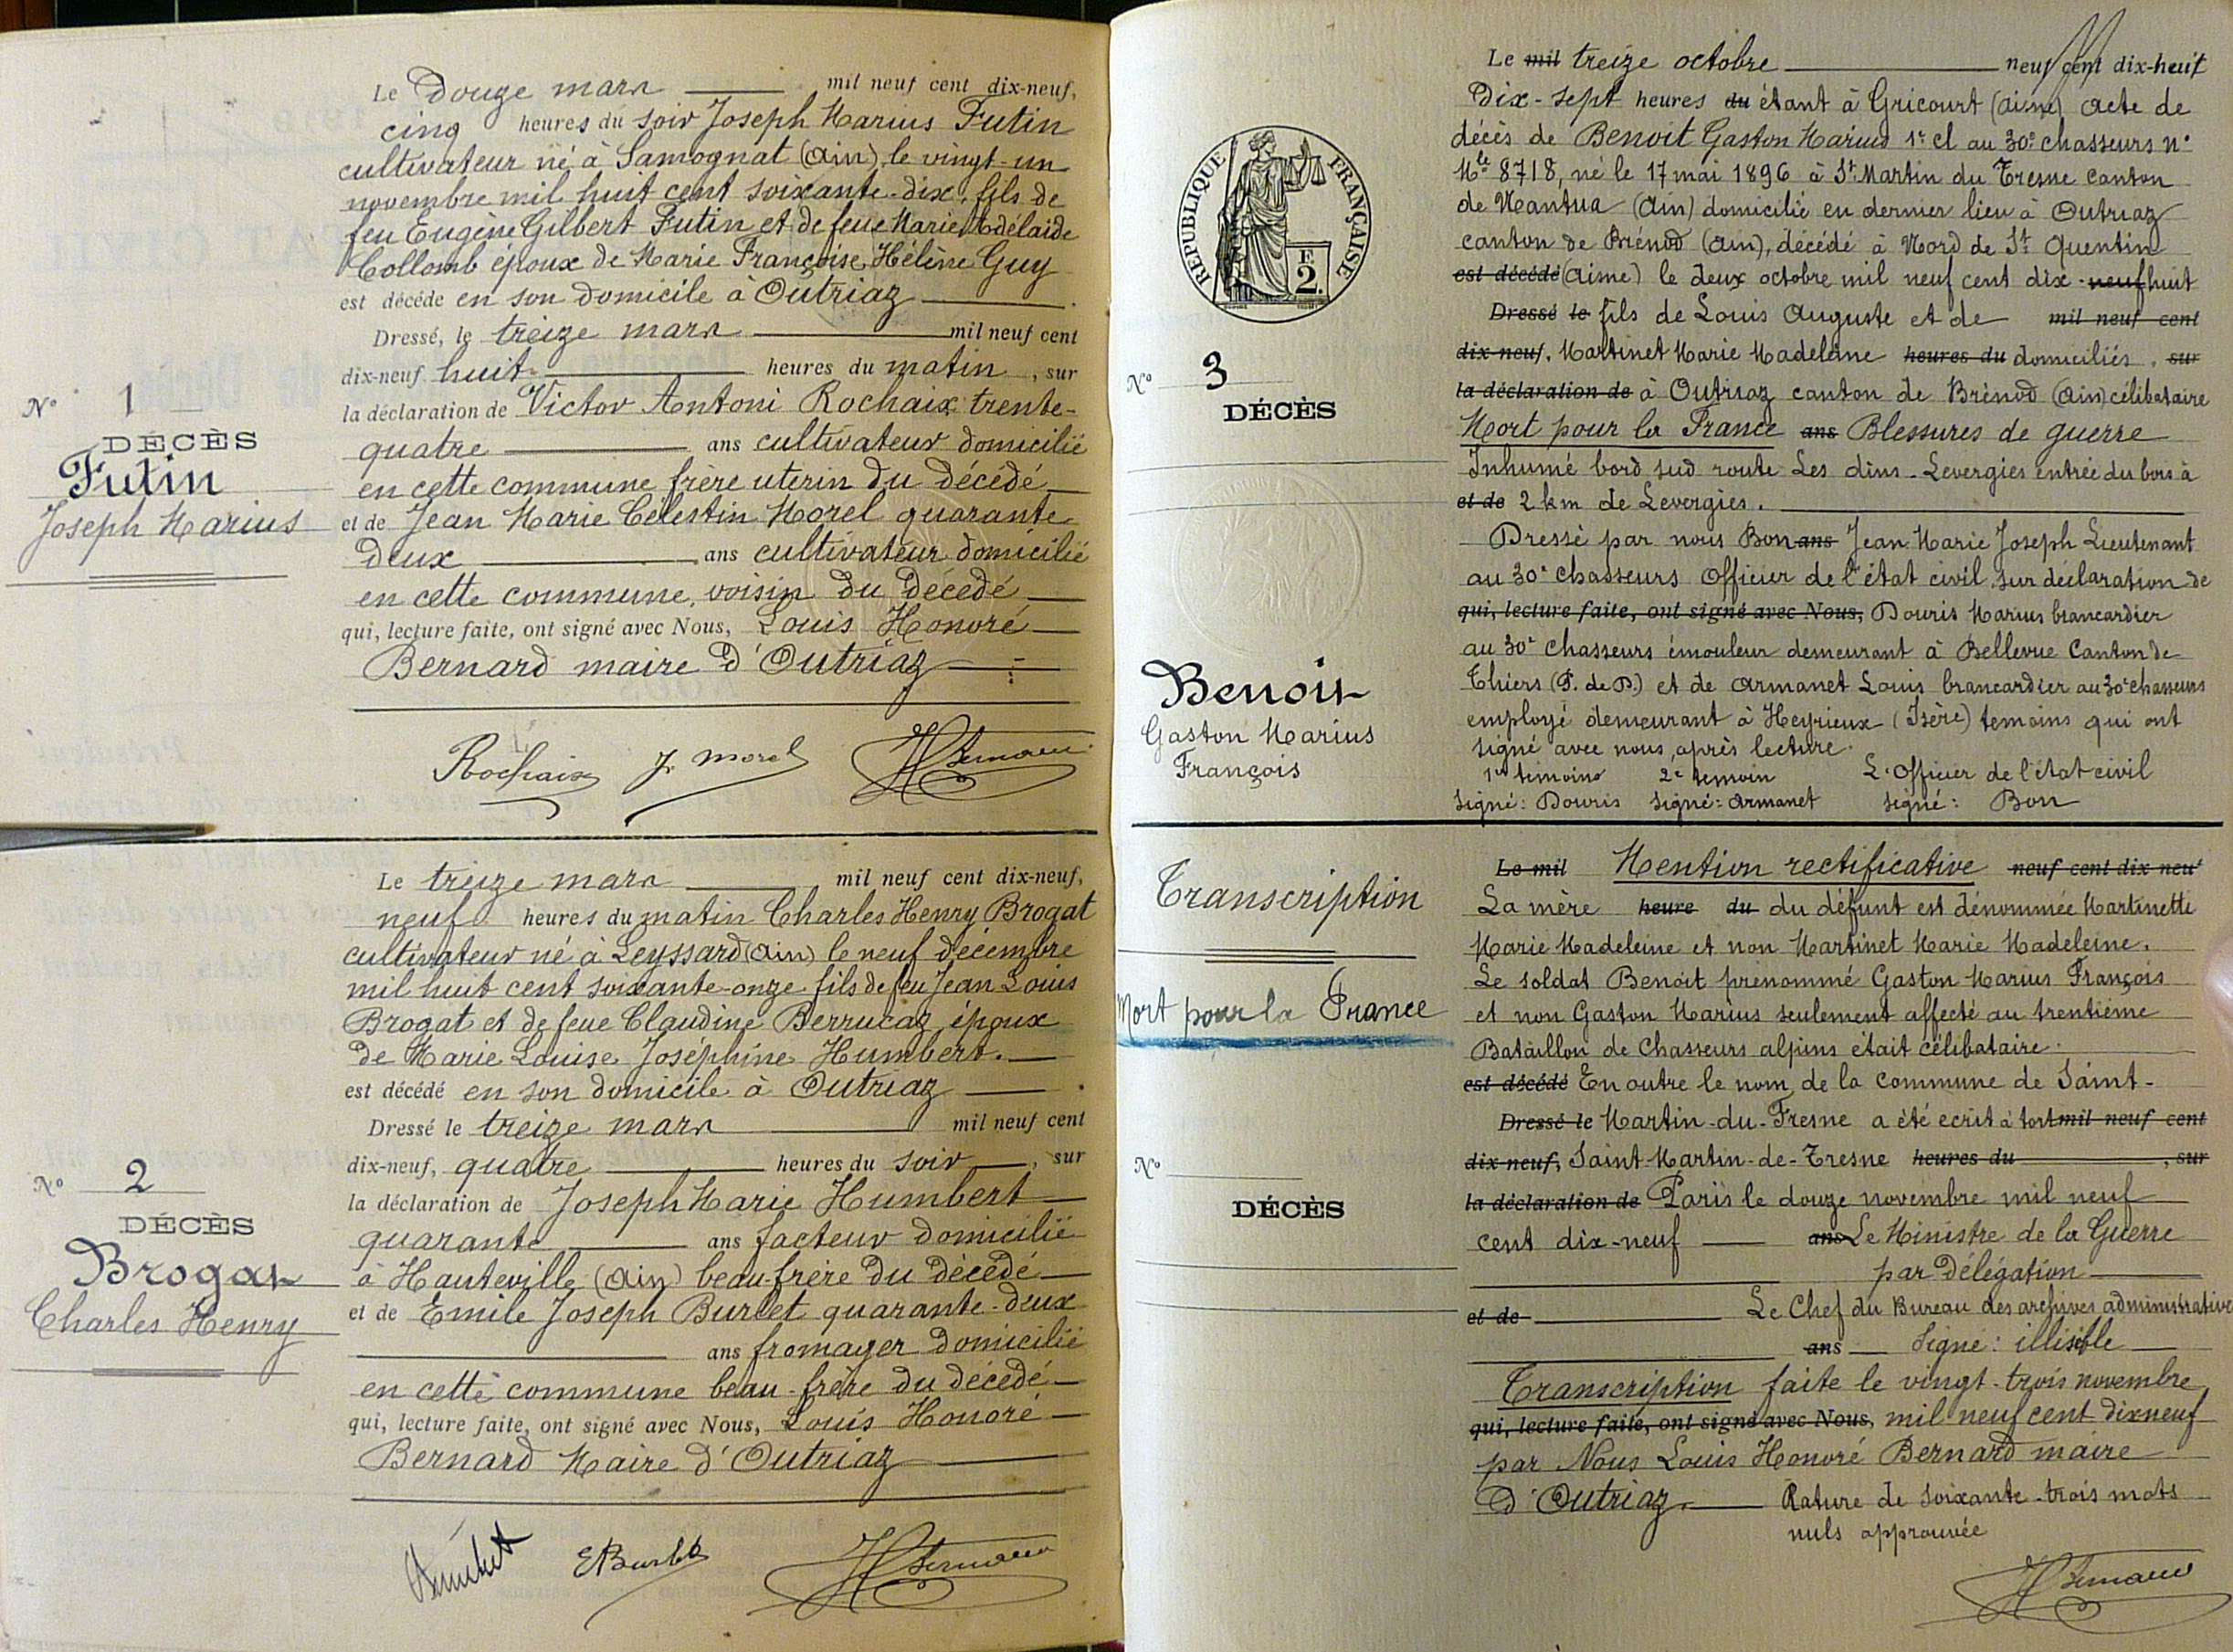 Le Douze mars mil neuf cent dix-neuf,
cinq heures du soir Joseph Marius Futin
cultivateur né à Samognat (Ain), le vingt-un
novembre mil huit cent soixante-dix, fils de
feu Eugène Gilbert Futin et de feue Marie Adélaïde
Collomb époux de Marie Françoise Hélène Guy
est décédé en son domicile à Outriaz.
Dressé, le treize mars mil neuf cent
dix-neuf huit heures du matin, sur
la déclaration de Victor Antoni Rochaix trente-
quatre ans cultivateur domicilié
en cette commune frère uterin du décédé
et de Jean Marie Célestin Morel quarante
deux ans cultivateur domicilié
en cette commune, voisin du décedé
qui, lecture faite, ont signé avec Nous, Louis Honoré
Bernard maire d'Outriaz
No 1
DÉCÈS
Futin
Joseph Marius
Rochaix J. Morel H Bernard
Le treize mars mil neuf cent dix-neuf,
neuf heures du matin Charles Henry Brogat
cultivateur né à Leyssard (Ain) le neuf décembre
mil huit cent soixante-onze fils de feu Jean Louis
Brogat et de feue Claudine Berrucaz, époux
de Marie Louise Joséphine Humbert.
est décédé en son domicile à Outriaz.
Dressé le treize mars mil neuf cent
dix-neuf, quatre heures du soir, sur
la déclaration de Joseph Marie Humbert
quarante ans facteur domicilié
à Hauteville (Ain) beau-frère du décédé
et de Emile Joseph Burlet quarante-deux
ans fromager domicilié
en cette commune beau-frère du décédé
qui, lecture faite, ont signé avec Nous, Louis Honoré
Bernard Maire d'Outriaz
No 2
DÉCÈS
Brogat
Charles Henry
Humbert EBurlet H Bernard
RÉPUBLIQUE FRANÇAISE
F
2.
Le mil treize octobre neuf cent dix-huit
Dix-sept heures du étant à Gricourt (Aisne) Acte de
décès de Benoit Gaston Marius 1e cl au 30e chasseurs No
Mle 8718, né le 17 mai 1896 à St Martin du Tresne canton
de Nantua (Ain) domicilié en dernier lieu à Outriaz
canton de Brénod (Ain), décédé à Nord de St Quentin
est décédé (Aisne) le deux octobre mil neuf cent dix-neuf huit
Dressé le fils de Louis Auguste et de mil neuf cent
dix-neuf, Martinet Marie Madeleine heures du domiciliés, sur
la déclaration de à Outriaz canton de Brénod (Ain) célibataire
Mort pour la France ans Blessures de guerre
Inhumé bord sud route Les dins-Levergies entrée du bois à
et de 2 km de Levergies.
Dressé par nous Bon ans Jean Marie Joseph Lieutenant
au 30e chasseurs Officier de l'état civil, sur déclaration de
qui, lecture faite, ont signé avec Nous, Douris Marius brancardier
au 30e Chasseurs émouleur demeurant à Bellevue Canton de
Thiers (P. de D.) et de Armanet Louis brancardier au 30e chasseurs
employé demeurant à Heyrieux (Isère) temoins qui ont
signé avec nous, après lecture.
1er temoins 2e temoin L'Officier de l'état civil
signé: Douris signé: Armanet signé: Bon
No 3
DÉCÈS
Benoit
Gaston Marius
François
Transcription
Mort pour la France
No
DÉCÈS
Le mil Mention rectificative neuf cent dix neuf
La mère heure du du défunt est dénommée Martinette
Marie Madeleine et non Martinet Marie Madeleine.
Le soldat Benoit prénommé Gaston Marius François
et non Gaston Marius seulement affecté au trentième
Bataillon de Chasseurs alpins était célibataire.
est décédé En outre le nom de la commune de Saint-
Dressé le Martin-du-Fresne a été ecrit à tort mil neuf cent
dix neuf, Saint-Martin-de-Tresne heures du, sur
la déclaration de Paris le douze novembre mil neuf
cent dix-neuf ans Le Ministre de la Guerre
par délégation
et de Le Chef du Bureau des archives administratives
ans Signé: illisible
Transcription faite le vingt-trois novembre
qui, lecture faite, ont signé avec Nous, mil neuf cent dix neuf
par Nous Louis Honoré Bernard maire
d'Outriaz. Rature de soixante-trois mots
nuls approuvée
H Bernard